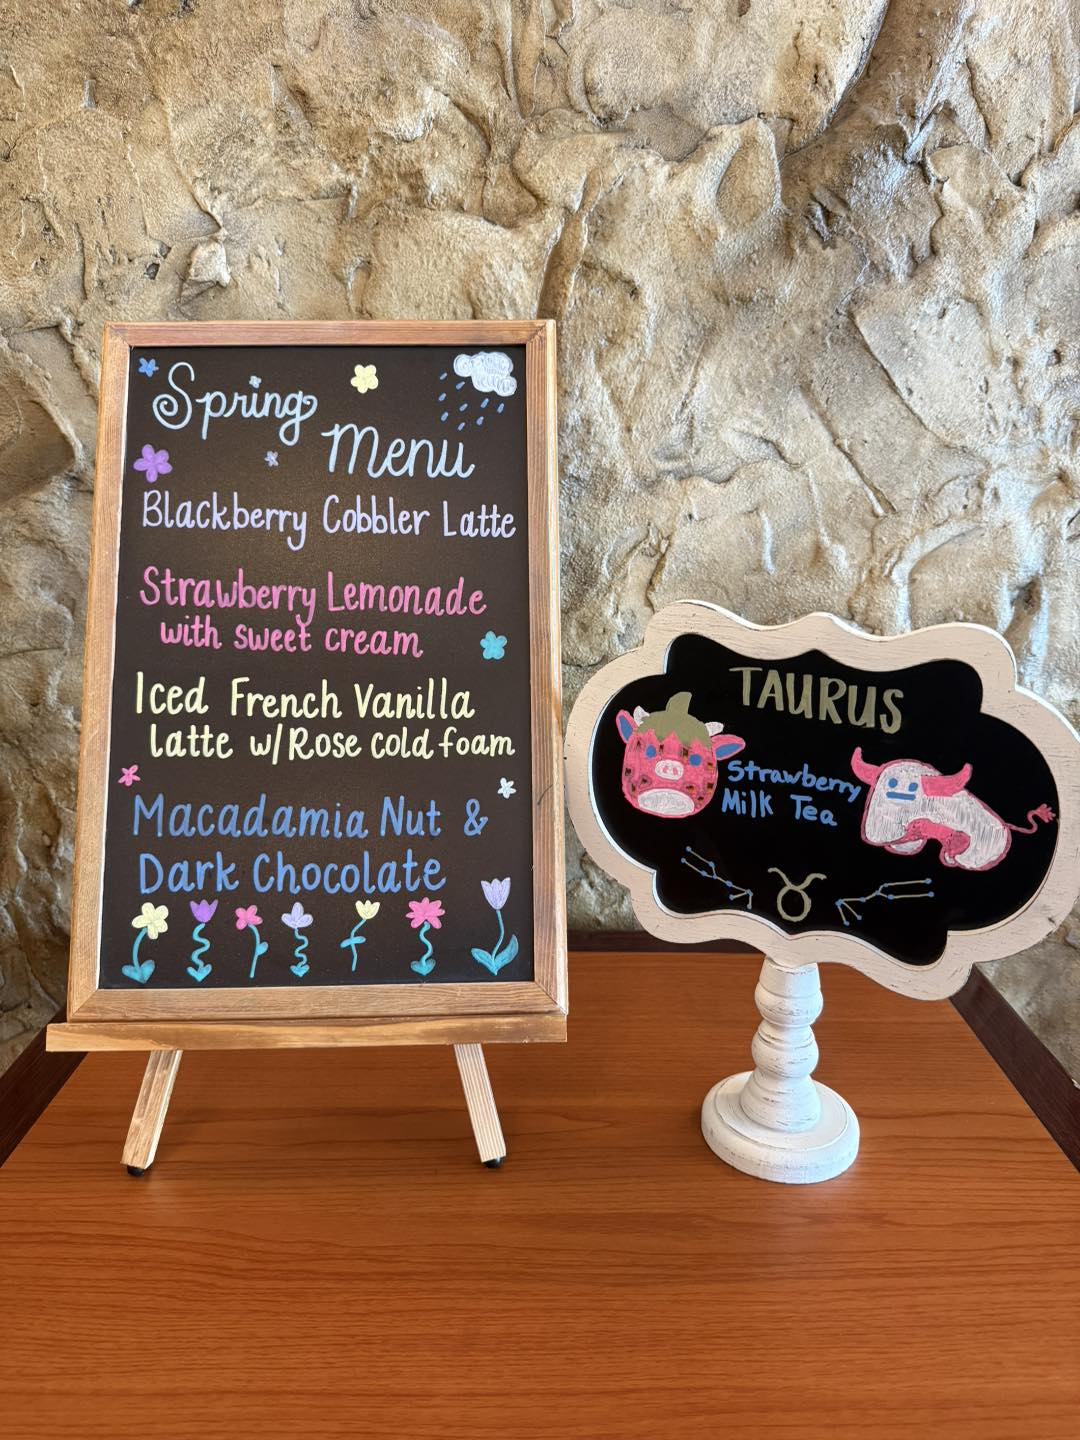 Spring
Menu
Blackberry Cobbler Latte
Strawberry Lemonade
with sweet cream
Iced French Vanilla
latte w/Rose cold foam
Macadamia Nut &
Dark Chocolate
TAURUS
Strawberry
Milk Tea